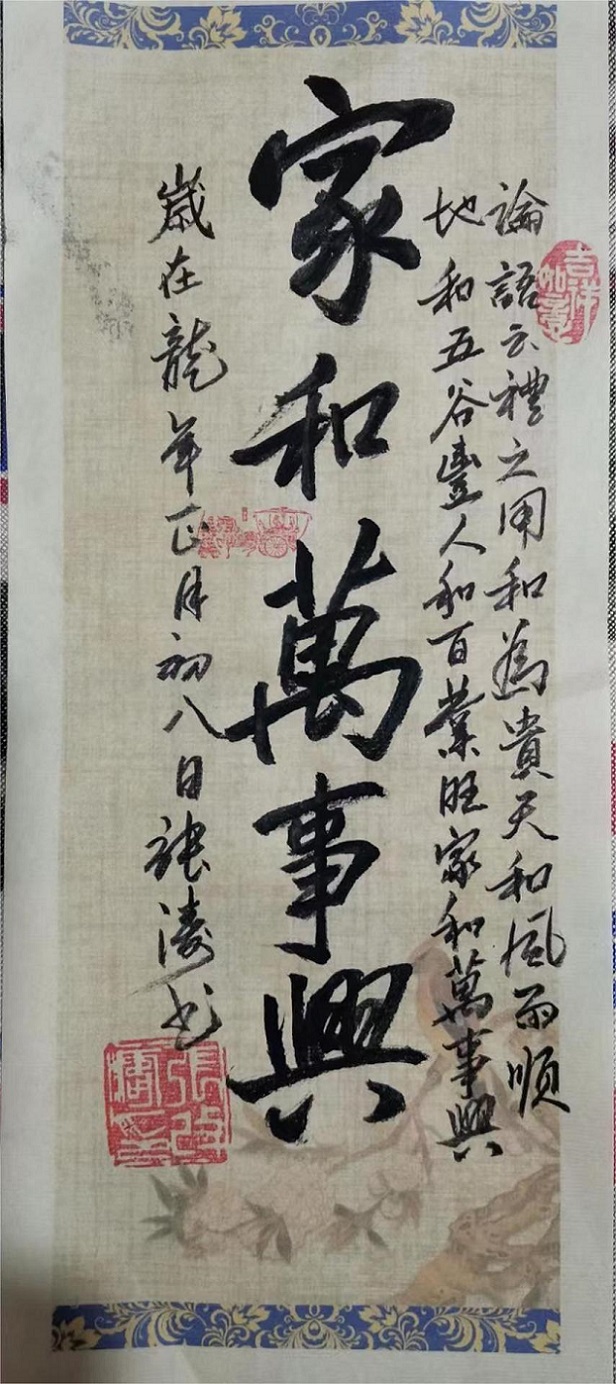 論語云禮之用和為貴天和風雨順
地和五谷豐人和百業旺家和萬事興
家和萬事興
歲在龍年正月初八日張濤書
吉祥如意